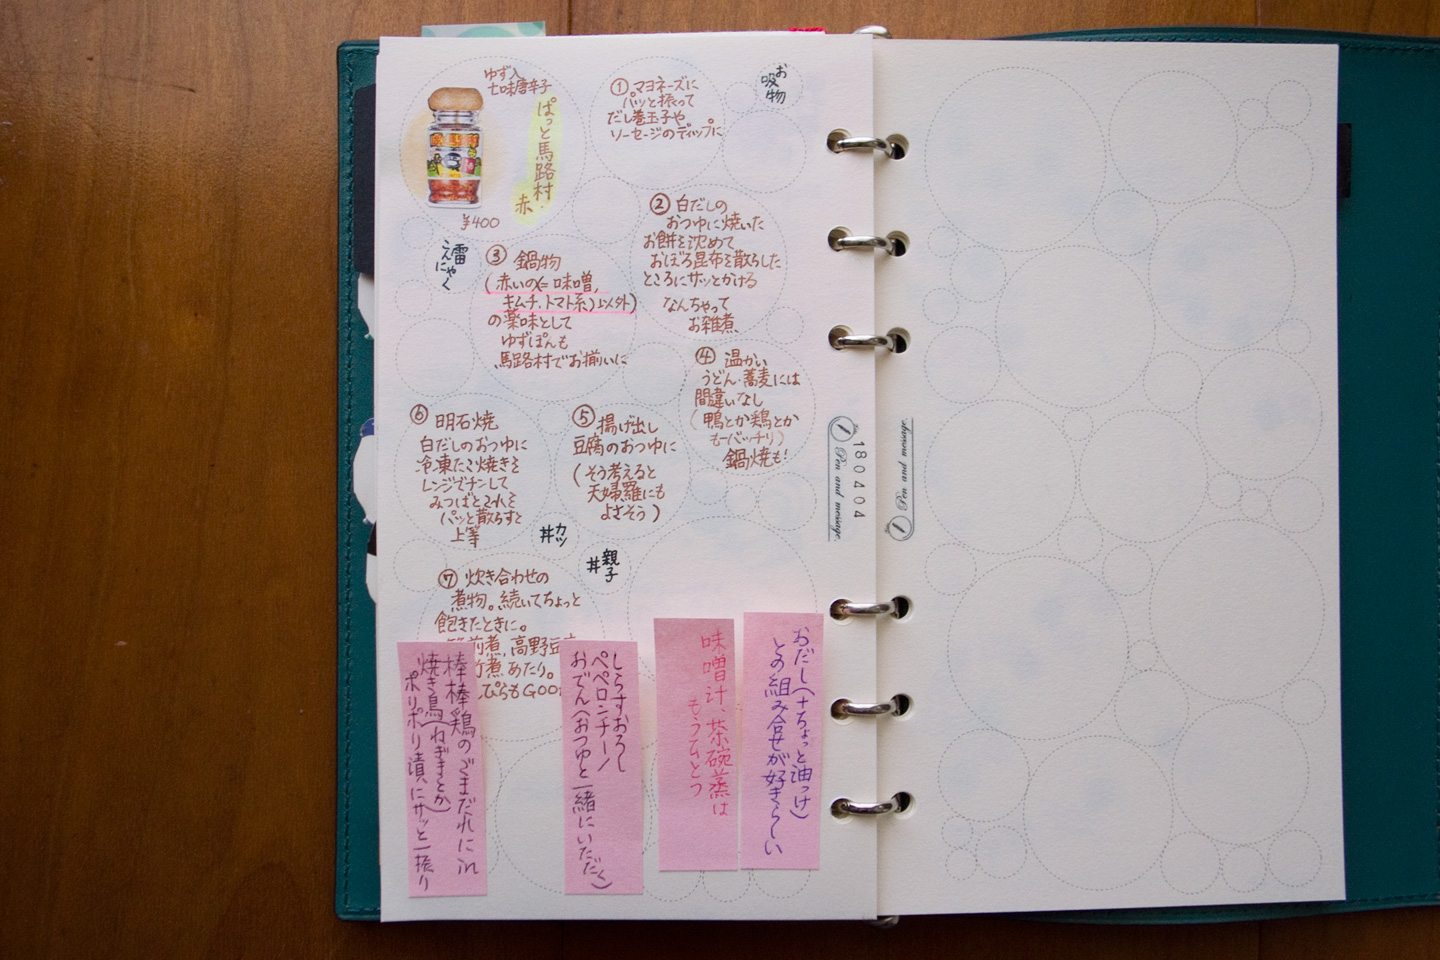 ゆず入
七味唐辛子
ぱっと馬路村・
赤
¥400
① マヨネーズに
パッと振って
だし巻玉子や
ソーセージのディップに
お
吸物
② 白だしの
おつゆに焼いた
お餅を沈めて
おぼろ昆布を散らした
ところにサッとかける
なんちゃって
お雑煮
雷
こんにゃく
③ 鍋物
(赤いの(=味噌,
キムチ,トマト系)以外)
の薬味として
ゆずぽんも
馬路村でお揃いに
④ 温かい
うどん・蕎麦には
間違いなし
(鴨とか鶏とか
もーバッチリ)
鍋焼も!
⑤ 揚げ出し
豆腐のおつゆに
(そう考えると
天婦羅にも
よさそう)
⑥ 明石焼
白だしのおつゆに
冷凍たこ焼きを
レンジでチンして
みつばとこれを
パッと散らすと
上等
カツ
丼
親子
丼
⑦ 炊き合わせの
煮物。続いてちょっと
飽きたときに。
前煮,高野豆
煮あたり。
ぴらもGOO
おだし(+ちょっと油っけ)
との組み合せが好きらしい
味噌汁、茶碗蒸は
もうひとつ
しらすおろし
ペペロンチーノ
おでん(おつゆと一緒にいただく)
棒棒鶏のごまだれに
焼き鳥(ねぎまとか)
ポリポリ漬にサッと一振り
180404
Pen and message.
Pen and message.